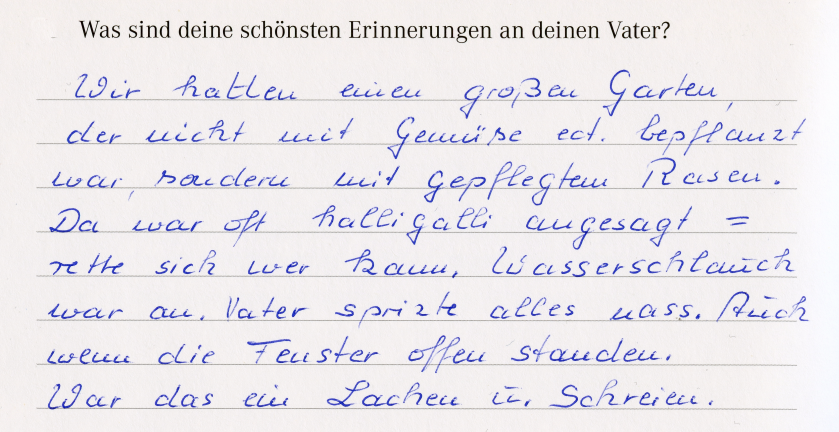 Was sind deine schönsten Erinnerungen an deinen Vater?
Wir hatten einen großen Garten,
der nicht mit Gemüse ect. bepflanzt
war, sondern mit gepflegtem Rasen.
Da war oft halligalli angesagt =
rette sich wer kann. Wasserschlauch
war an. Vater sprizte alles nass. Auch
wenn die Fenster offen standen.
War das ein Lachen u. Schreien.